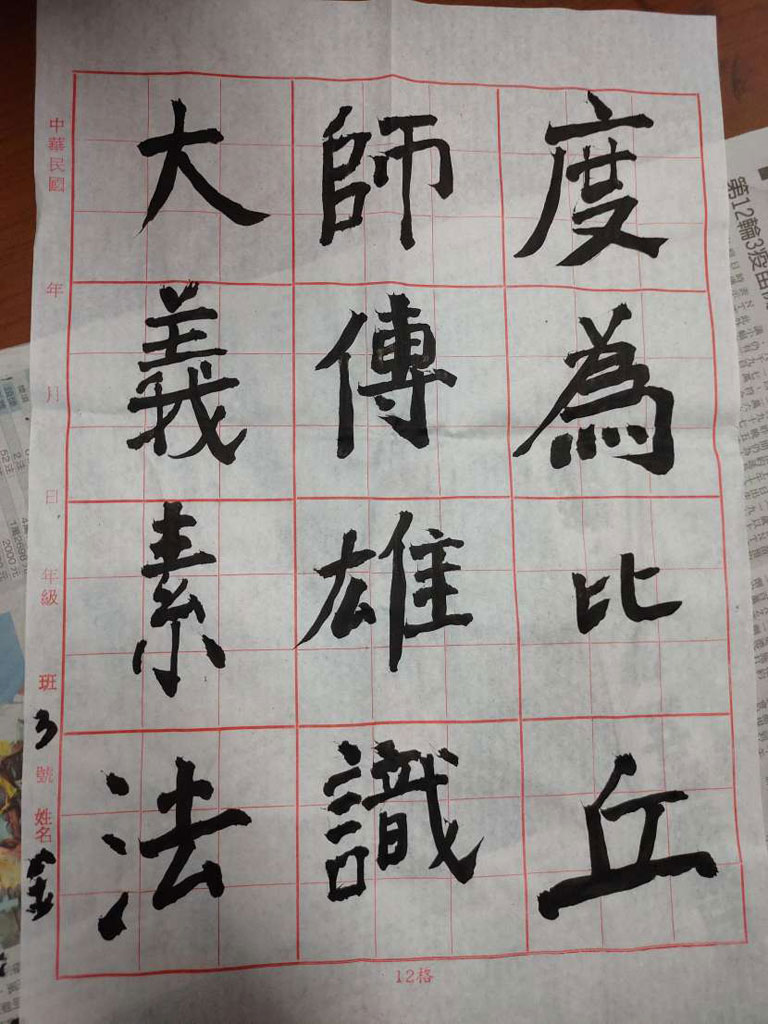 度為比丘
師傳雄識
大義素法
中華民國 年 月 日 年級 班 3 號 姓名
12格
第12輪3疫苗